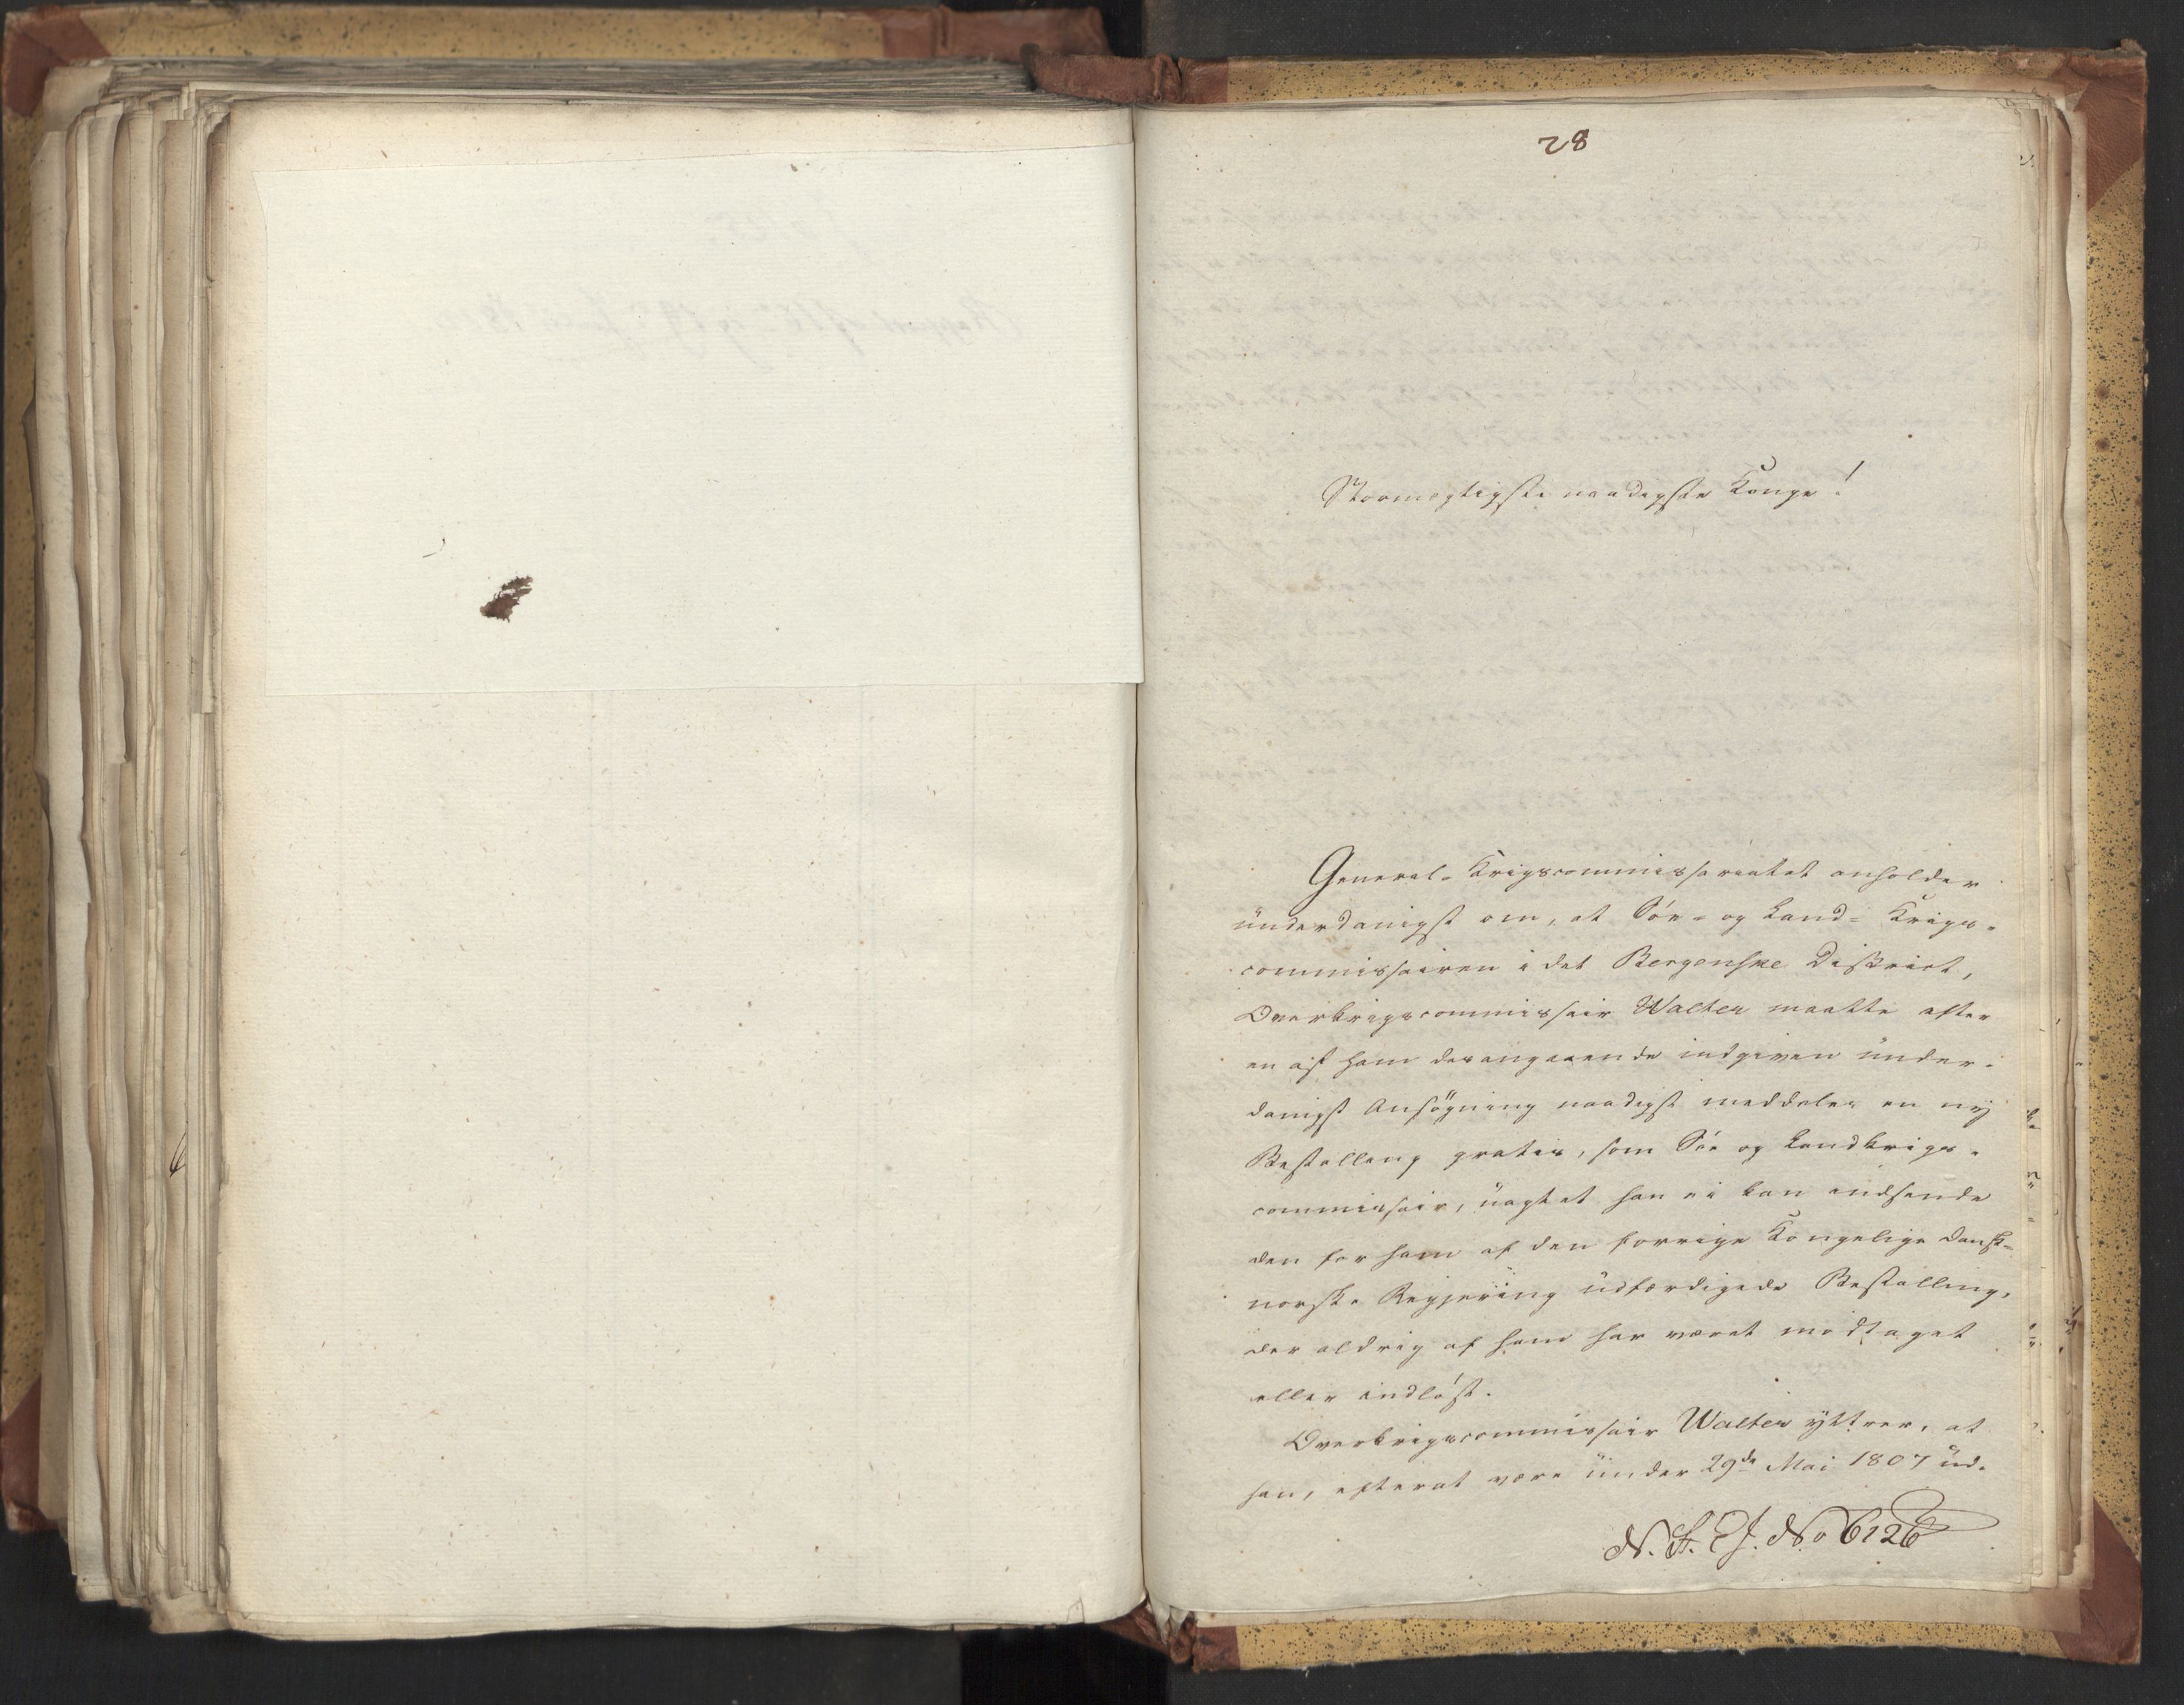 28
Stormegtigste naadigste Konge!
General-Krigscommissariatet anholder
underdanigst om, at Söe- og Land- Krigs-
commissairen i det Bergenske District,
Overkrigscommissair Walter maatte efter
en af ham desangaaende indgiven under-
danigst Ansøgning naadigst meddeles en ny
Bestalling gratis, som Söe og Landkrigs-
commissair, uagtet han ei kan indsende
den for ham af den forrige Kongelige Dansk-
norske Regjering udfærdigede Bestalling,
der aldrig af ham har været modtaget
eller indløst.
Overkrigscommissair Walter yttrer, at
han, efterat være under 29de Mai 1807 ud-
N. St. E J. No 6126